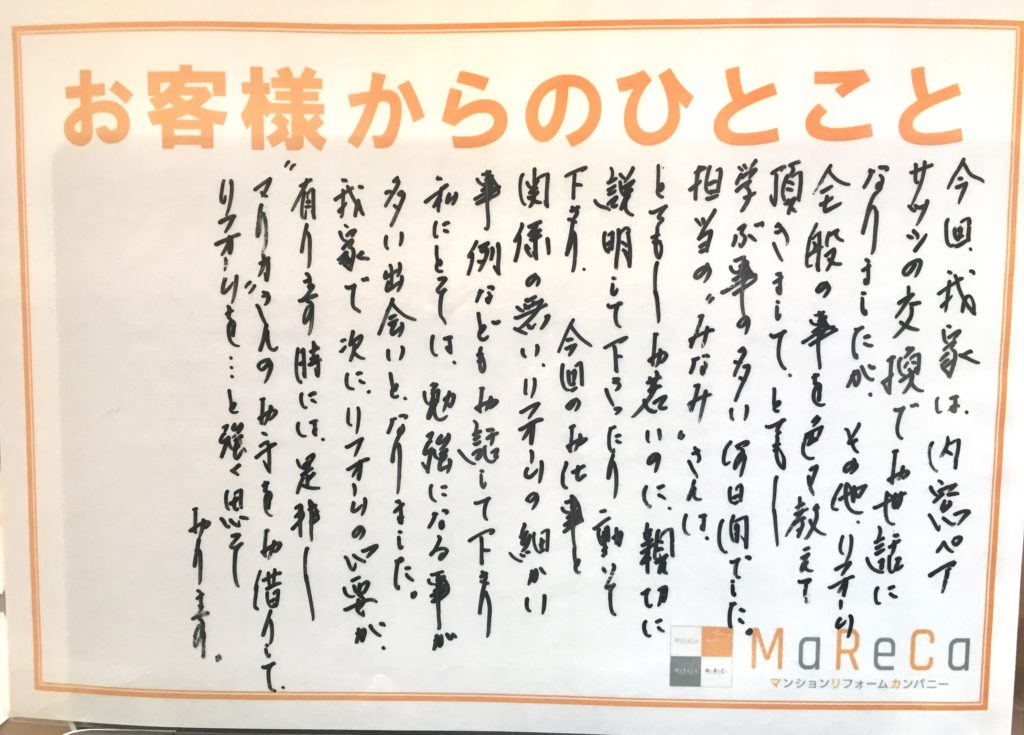 お客様からのひとこと
今回、我家は、内窓ペア
サッシの交換でお世話に
なりましたが、その他、リフォーム
全般の事を色々教えて
頂きまして、とても〜
学ぶ事の多い何日間でした。
担当の〝みなみ〟さんは、
とても〜お若いのに、親切に
説明して下さったり動いて
下さり、今回のお仕事と
関係の無い、リフォームの細かい
事例などもお話して下さり
私にとっては、勉強になる事が
多い出会いと、なりました。
我家で次に、リフォームの必要が、
有ります時には、是非〜
〝マリカ〟さんのお手をお借りして、
リフォームを…と強く思って
おります。
MaReCa
マンションリフォームカンパニー